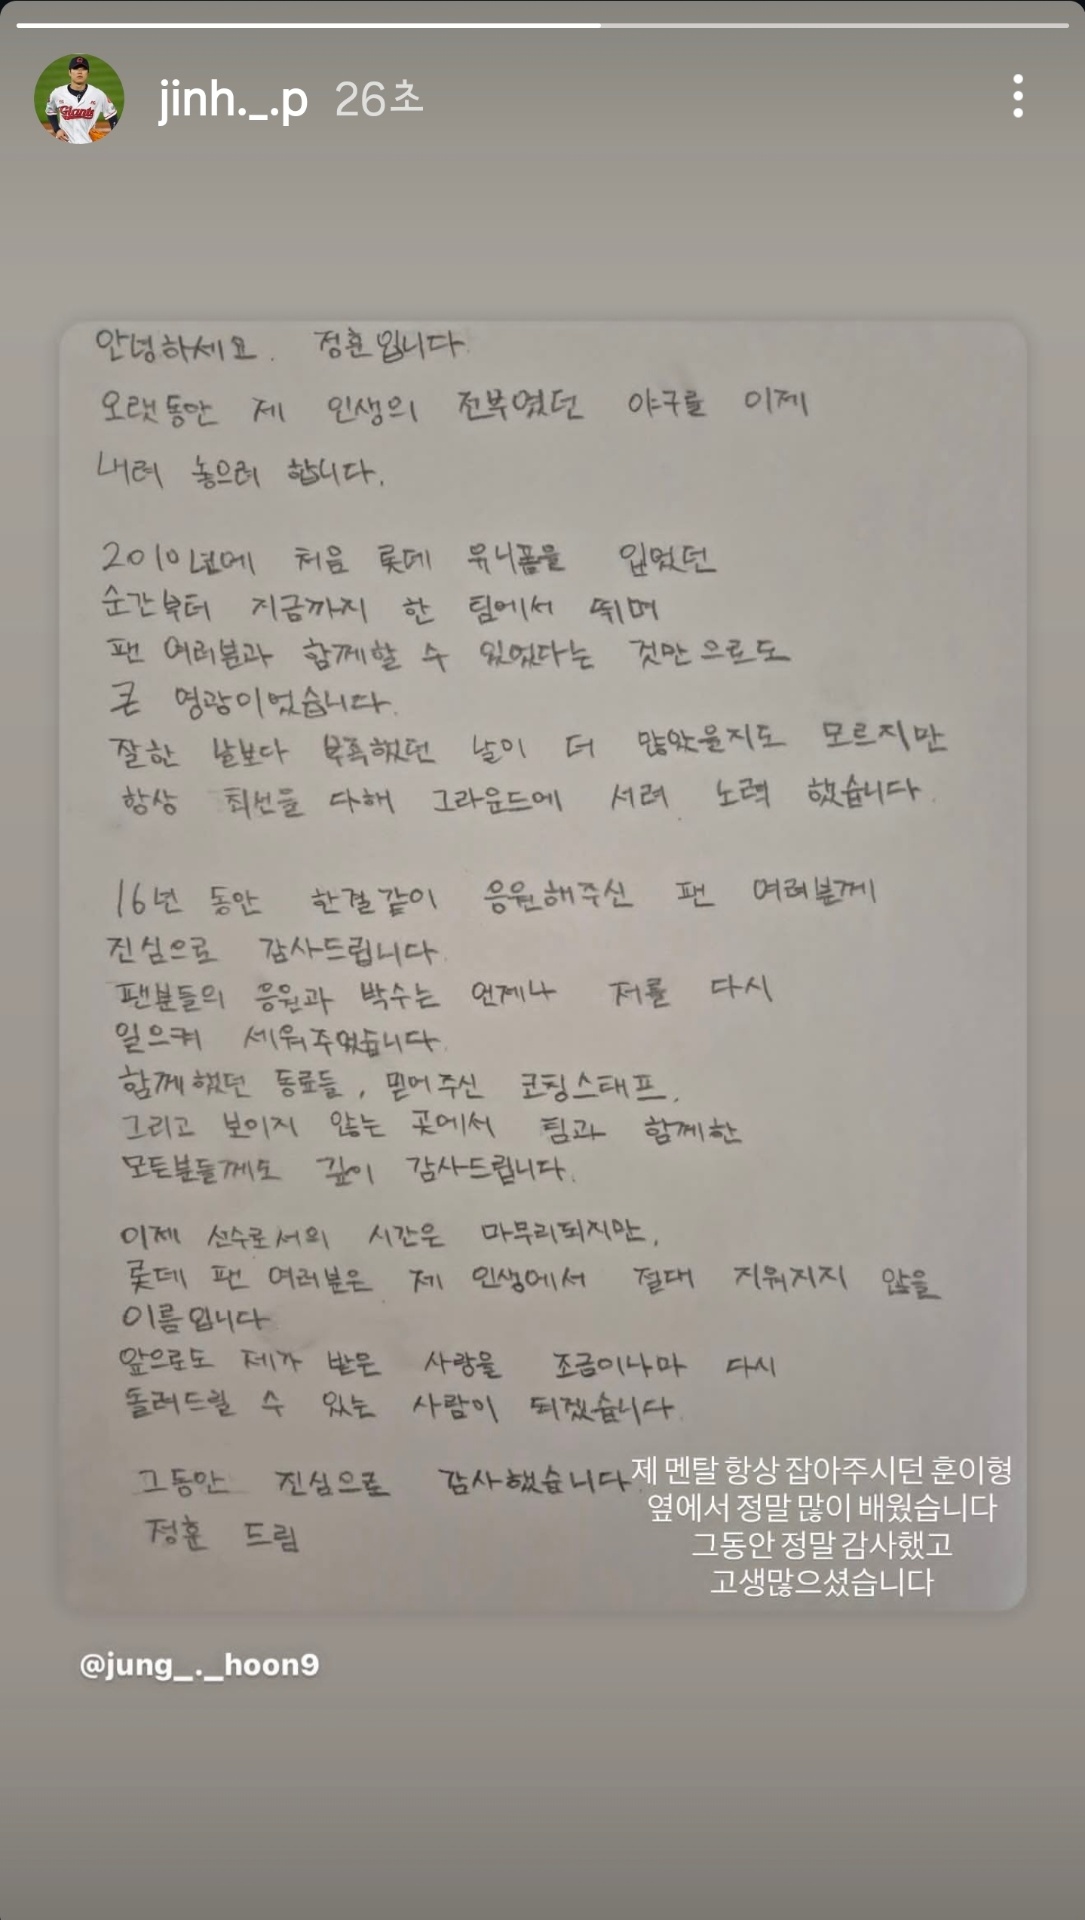 jinh._.p 26초
Giants
안녕하세요. 정훈입니다.
오랫동안 제 인생의 전부였던 야구를 이제
내려 놓으려 합니다.
2010년에 처음 롯데 유니폼을 입었던
순간부터 지금까지 한 팀에서 뛰며
팬 여러분과 함께할 수 있었다는 것만으로도
큰 영광이었습니다.
잘한 날보다 부족했던 날이 더 많았을지도 모르지만
항상 최선을 다해 그라운드에 서려 노력 했습니다.
16년 동안 한결같이 응원해주신 팬 여러분께
진심으로 감사드립니다.
팬분들의 응원과 박수는 언제나 저를 다시
일으켜 세워주었습니다.
함께했던 동료들, 믿어주신 코칭스태프,
그리고 보이지 않는 곳에서 팀과 함께한
모든분들께도 깊이 감사드립니다.
이제 선수로서의 시간은 마무리되지만,
롯데 팬 여러분은 제 인생에서 절대 지워지지 않을
이름입니다
앞으로도 제가 받은 사랑을 조금이나마 다시
돌려드릴 수 있는 사람이 되겠습니다.
그동안 진심으로 감사했습니다.
정훈 드림
제 멘탈 항상 잡아주시던 훈이형
옆에서 정말 많이 배웠습니다
그동안 정말 감사했고
고생많으셨습니다
@jung_._hoon9